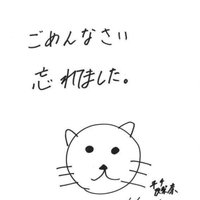 ごめんなさい
忘れました。